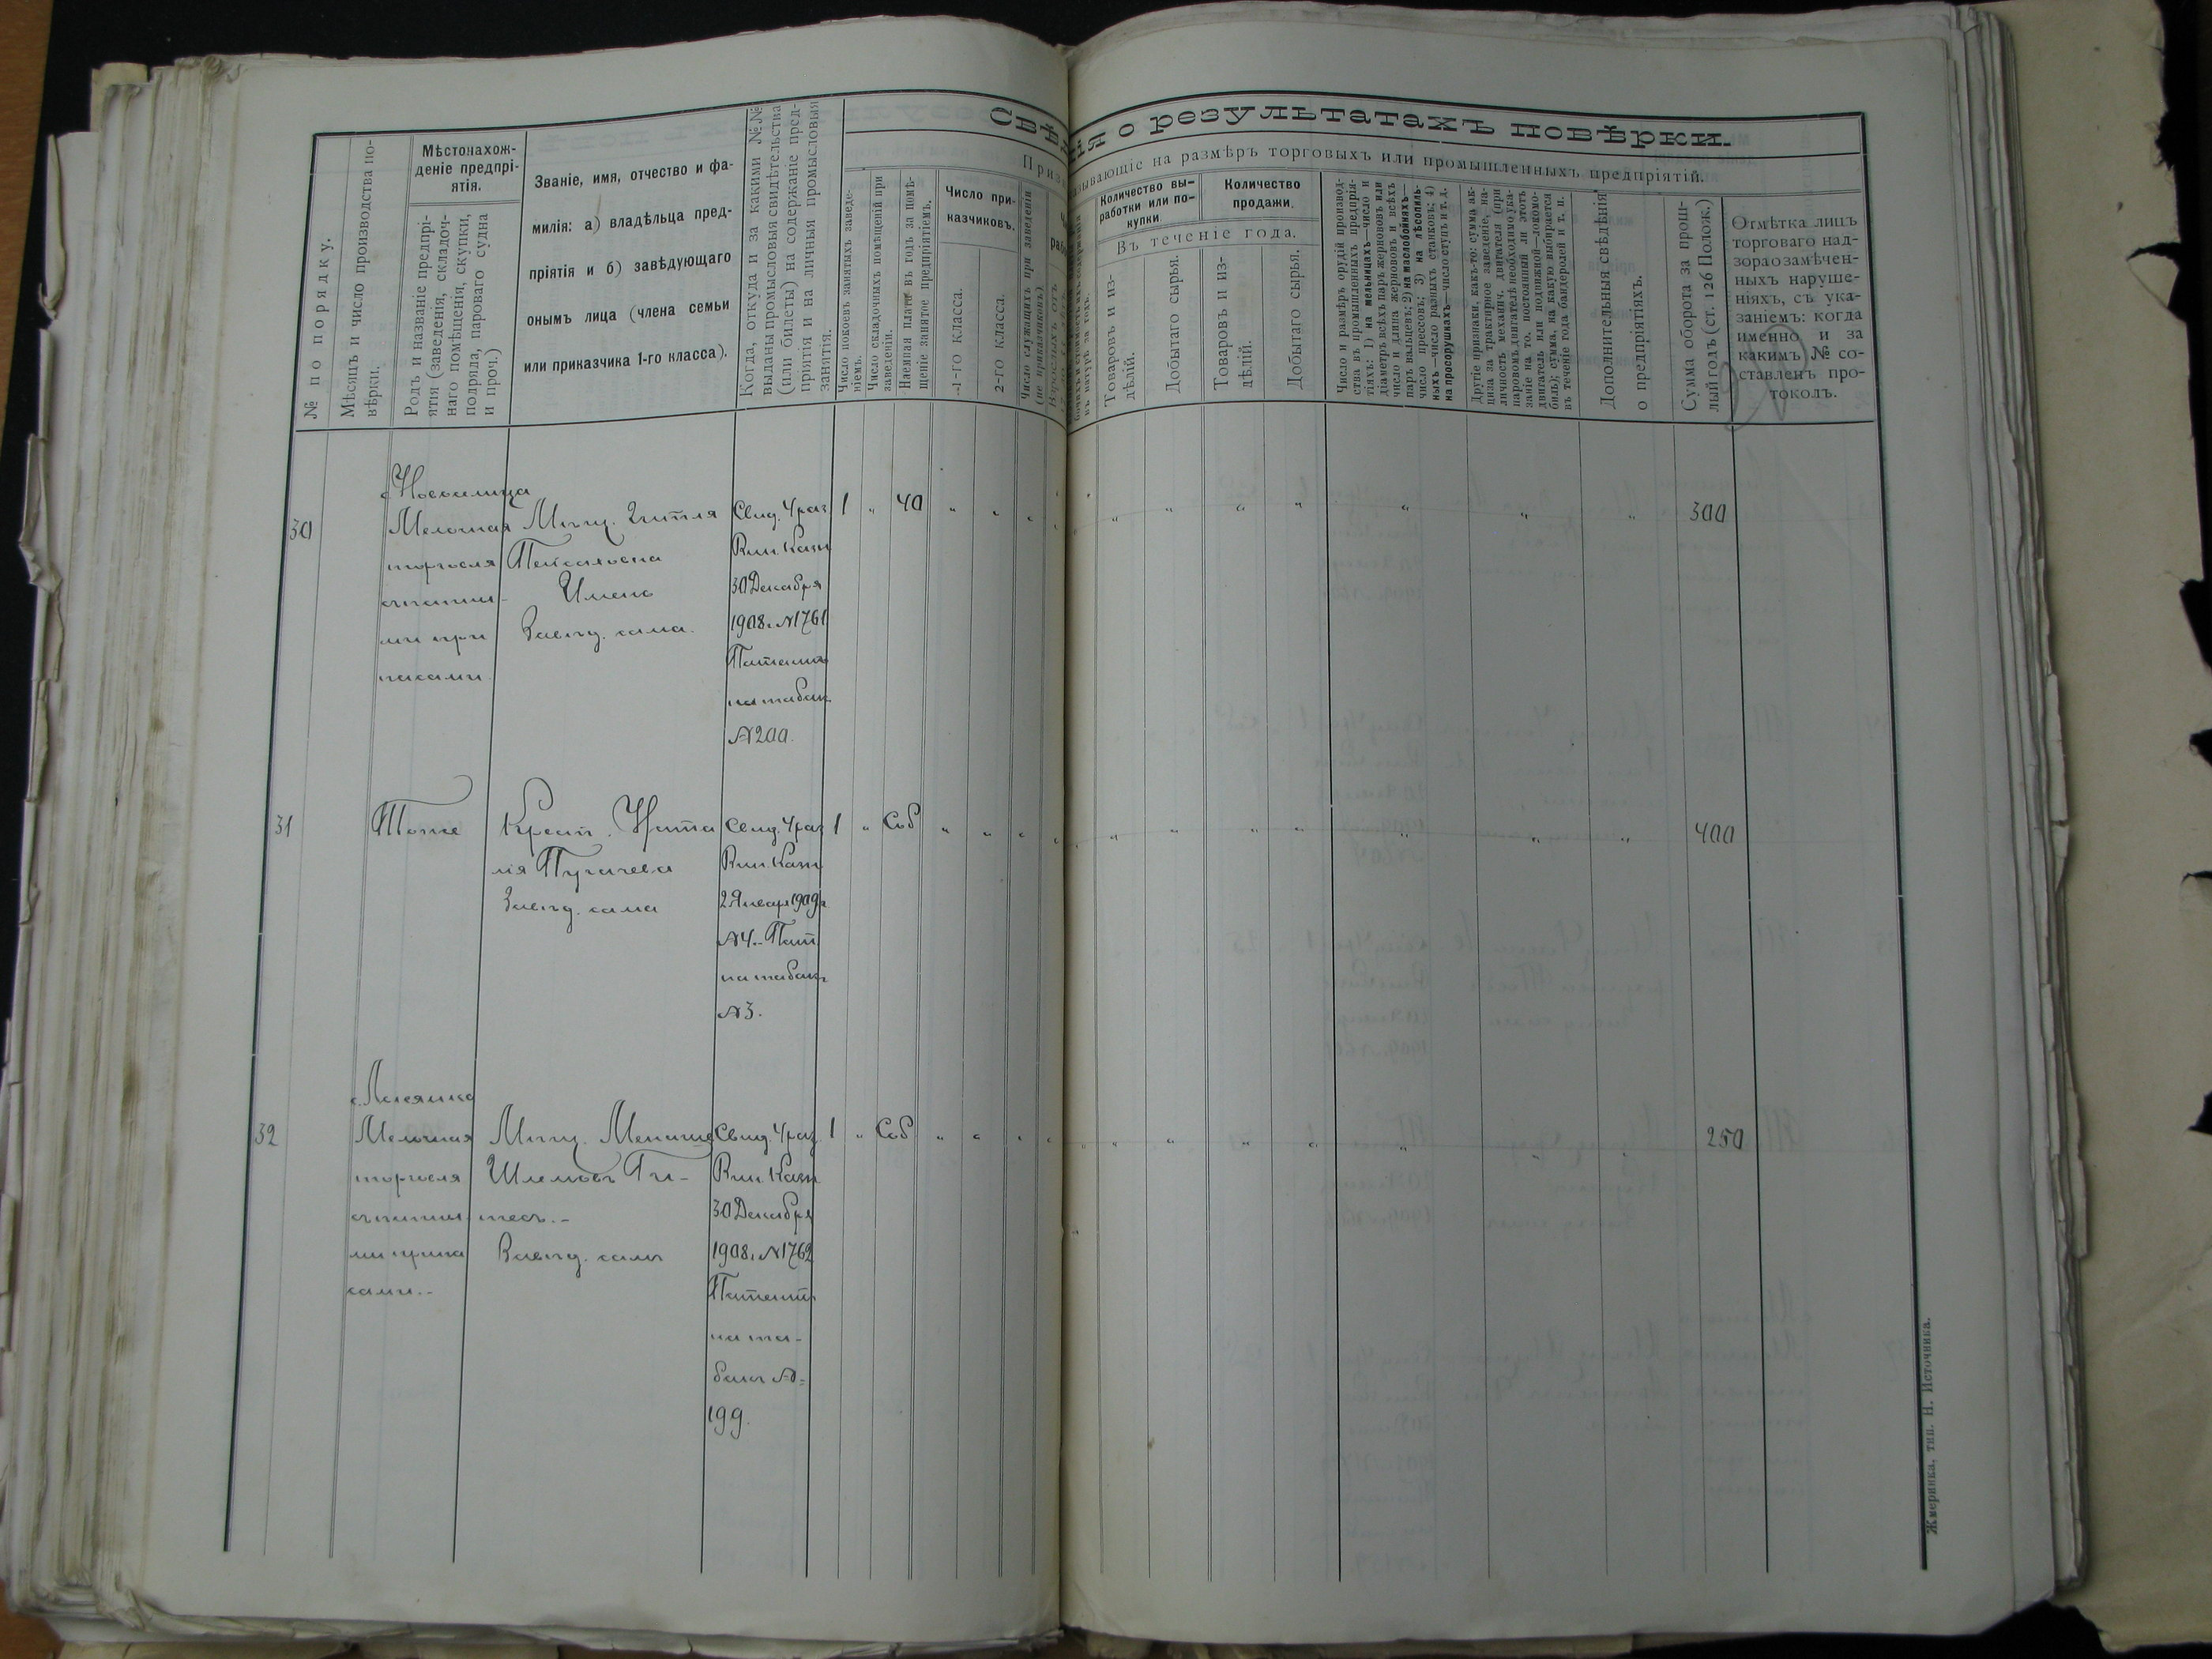 Свѣ
нія о результатахъ повѣрки.
Приз
азывающіе на размѣръ торговыхъ или промышленныхъ предпріятій.
№ по порядку.
Мѣсяцъ и число производства по-
вѣрки.
Мѣстонахож-
деніе предпрі-
ятія.
Родъ и названіе предпрі-
ятія (заведенія, складоч-
наго помѣщенія, скупки,
подряда, пароваго судна
и проч.)
Званіе, имя, отчество и фа-
милія: а) владѣльца пред-
пріятія и б) завѣдующаго
онымъ лица (члена семьи
или приказчика 1-го класса).
Когда, откуда и за какими №№
выданы промысловыя свидѣтельства
(или билеты) на содержаніе пред-
пріятія и на личныя промысловыя
занятія.
Число покоевъ занятыхъ заведе-
ніемъ.
Число складочныхъ помѣщеній при
заведеніи.
Наемная плата въ годъ за помѣ-
щеніе занятое предпріятіемъ.
Число при-
казчиковъ.
1-го класса.
2-го класса.
Число служащихъ при заведеніи
(не приказчиковъ).
Количество вы-
работки или по-
купки.
Количество
продажи.
Въ теченіе года.
Товаровъ и из-
дѣлій.
Добытаго сырья.
Товаровъ и из-
дѣлій.
Добытаго сырья.
Число и размѣръ орудій производ-
ства въ промышленныхъ предпрія-
тіяхъ: 1) на мельницахъ—число и
діаметръ всѣхъ паръ жернововъ или
число и длина жернововъ и всѣхъ
паръ вальцевъ; 2) на маслобойняхъ—
число прессовъ; 3) на лѣсопиль-
ныхъ—число разныхъ станковъ; 4)
на просорушкахъ—число ступъ и т. д.
Другіе признаки, какъ-то: сумма ак-
циза за трактирное заведеніе, на-
личность механич. двигателя (при
паровомъ двигателѣ необходимо ука-
заніе на то, постоянный ли этотъ
двигатель или подвижной—локомо-
биль); сумма, на какую выбирается
въ теченіе года бандеролей и т. п.
Дополнительныя свѣдѣнія
о предпріятіяхъ.
Сумма оборота за прош-
лый годъ (ст. 126 Полож.)
Отмѣтка лицъ
торговаго над-
зора о замѣчен-
ныхъ наруше-
ніяхъ, съ ука-
заніемъ: когда
именно и за
какимъ № со-
ставленъ про-
токолъ.
30
Мелочная
торговля
ми при
пасами
Мѣщ.
Завѣд. сама.
Свид. 4 раз
Вин. Казн
30 Декабря
1908. №1761
Патентъ
на табак
№200.
1 „ 40 „ „ „ „ „ „ „ „ „ „ „ 300
31
Тоже
Крест. Ната
лія Пугачева
Завѣд. сама
Свид. 4 раз
Вин. Казн
2 Января 1909г
№4. Пат
на табакъ
№3.
1 „ Соб „ „ „ „ „ „ „ „ „ „ „ 400
32
Мелочная
торговля
ми припа
сами.-
Мѣщ.
Завѣд. самъ
Свид. 4 раз.
Вин. Казн
30 Декабря
1908. №1762
Патентъ
на та-
бакъ №-
199.
1 „ Соб „ „ „ „ „ „ „ „ „ „ „ 250
Жмеринка, тип. Н. Источника.